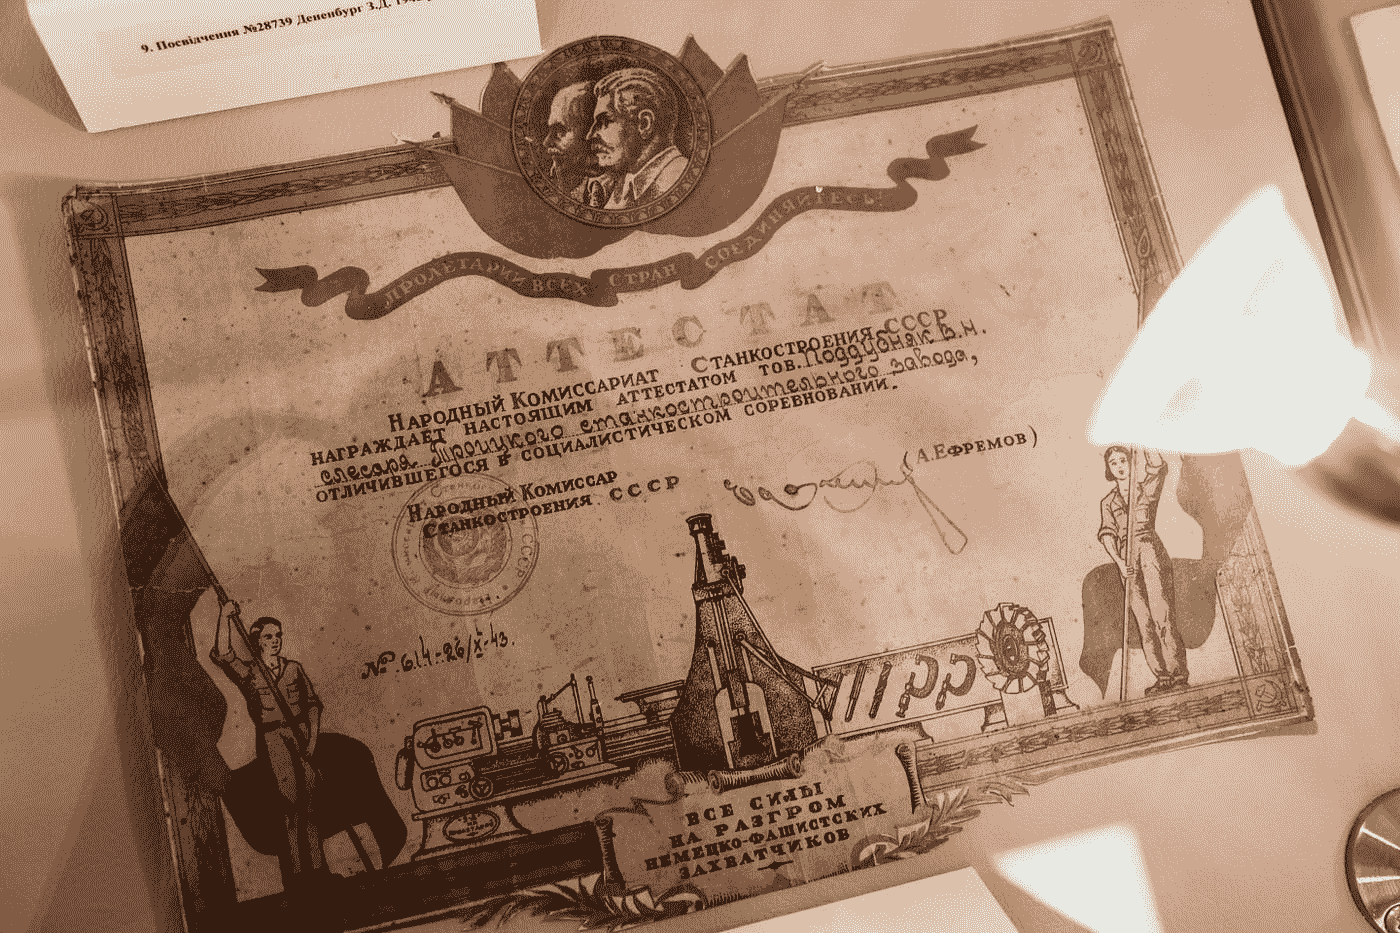 9. Посвідчення №28739 Дененбург З.Д. 194
ПРОЛЕТАРИИ ВСЕХ СТРАН СОЕДИНЯЙТЕСЬ!
АТТЕСТАТ
НАРОДНЫЙ КОМИССАРИАТ СТАНКОСТРОЕНИЯ СССР
НАГРАЖДАЕТ НАСТОЯЩИМ АТТЕСТАТОМ ТОВ. Поддубняк В.Н.
слесаря Троицкого станкостроительного завода,
ОТЛИЧИВШЕГОСЯ В СОЦИАЛИСТИЧЕСКОМ СОРЕВНОВАНИИ.
НАРОДНЫЙ КОМИССАР
СТАНКОСТРОЕНИЯ СССР
(А.ЕФРЕМОВ)
СССР
№ 614-26/X-43.
ВСЕ СИЛЫ
НА РАЗГРОМ
НЕМЕЦКО-ФАШИСТСКИХ
ЗАХВАТЧИКОВ